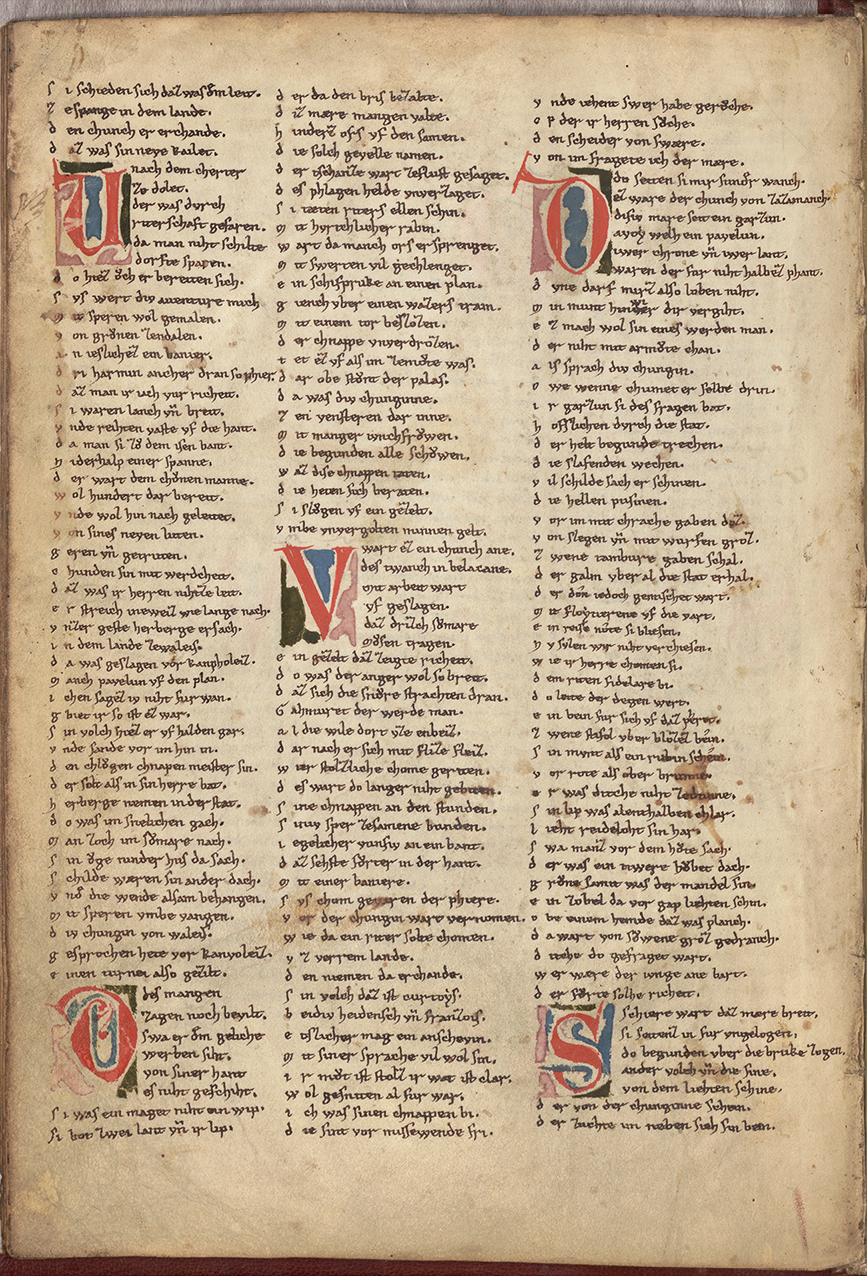 s i schieden sich daz was öm leit.
z e spange in dem lande.
d en chunch er erchande.
d az was sin neve kailet.
nach dem cherter
zo dolet.
der was dvrch
riterschaft gefaren.
da man niht schilte
dorfte sparen.
d o hiez öch er bereiten sich.
s vs wert div auenture mich
m it speren wol gemalen.
v on grönen zendalen.
d ri harmin ancher dran so phier.
d az man ir iach zvr richeit.
s i waren lanch vñ breit.
v nde reichten vaste vf die hant.
d a man si zö dem isen bant.
n iderhalp einer spanne.
d er wart dem chönen manne.
w ol hundert dar bereit.
v nde wol hin nach geleitet.
v on sines neven lvten.
g eren vñ getruten.
c hunden sin mit werdcheit.
d az was ir herren nihtze leit.
e r streich in eweiz wie lange nach.
v nzer geste herberge ersach.
i n dem lande zewaleis.
d a was geslagen vör kanpholeiz.
m anch pavelun vf den plan.
i chen sagez iv niht fur wan.
g biet ir so ist ez war.
s in volch hiez er vf halden gar.
v nde sande vor im hin in.
d en chlögen chnapen meister sin.
d er solt als in sin herre bat.
h erberge nemen in der stat.
d o was im snelichen gach.
m an zoch im sömare nach.
s in öge ninder hvs da sach.
s childe wæren sin ander dach.
v nö die wende alsam behangen.
m it speren vmbe vangen.
d iv chungin von waleis.
g esprochen hete vor kanvoleiz.
e inen turnei also gezilt.
des mangen
zagen noch bevilt.
swa er öm geliche
werben siht.
von siner hant
es niht geschiht.
s i was ein maget niht ein wip.
si bot zwei lant vñ ir lip.
d er da den bris bezalte.
d iz mære mangen valte.
h inderz ors vf den samen.
d ie solch gevelle namen.
d er tschanze wart zeflust gesaget.
d es phlagen helde vnverzaget.
s i tæten riters ellen schin.
m it hvrtchlicher rabin.
w art da manch ors er sprenget.
m it swerten vil gechlenget.
e in schifpruke an einen plan.
g iench vber einen wazers tram.
m it einem tor beslozen.
d er chnappe vnverdrözen.
t et ez vf als im zemöte was.
d ar obe stönt der palas.
d a was div chunginne.
z en venstern dar inne.
m it manger ivnchfröwen.
d ie begunden alle schöwen.
w az dise chnappen taten.
d ie heten sich beraten.
s i slögen vf ein gezelt.
v mbe vnvergolten minnen gelt.
wart ez ein chunch ane.
des twanch in belacane.
mit arbeit wart
vf geslagen.
daz drizch sömare
mösen tragen.
e in gezelt daz zeigte richeit.
d o was der anger wol so breit.
d az sich die snöre strachten dran.
G ahmuret der werde man.
a l die wile dort vze enbeiz.
d ar nach er sich mit flize fleiz.
w ier stolzliche chome geriten.
d es wart do langer niht gebiten.
s ine chnappen an den stunden.
s iniv sper zesamene bunden.
i egelicher vunfiv an ein bant.
d az sehste förter in der hant.
m it einer baniere.
s vs chom gevaren der phiere.
v or der chungin wart vernomen.
w ie da ein riter solte chomen.
v z verrem lande.
d en niemen da erchande.
s in volch daz ist curtoys.
b eidiv heidensch vñ franzois.
e tslicher mag ein anschevin.
m it siner sprache vil wol sin.
i r möt ist stolz ir wat ist clar.
w ol gesniten al fur war.
i ch was sinen chnappen bi.
d ie sint vor missewende fri.
v nde iehent swer habe geröche.
o p der ir herren söche.
d en scheider von swære.
v on im fragete ich der mære.
do seiten si mir sunder wanch.
ez ware der chunch von zazamanch.
disiv mare seit ein garzun.
avoy welh ein pavelun.
iwer chrone vñ iwer lant.
waren der fur niht halbez phant.
d vne darf mirz also loben niht.
m in munt hinder dir vergiht.
e z mach wol sin eines werden man.
d er niht mit armöte chan.
a ls sprach div chungin.
o we wenne chumet er selbe drin.
i r garzun si des fragen bat.
h offlichen dvrch die stat.
d er helt begunde trechen.
d ie slafenden wechen.
v il schilde sach er schinen.
d ie hellen pusinen.
v or im mit chrache gaben doz.
v on slegen vñ mit wurfen groz.
z wene tambure gaben schal.
d er galm vber al die stat erhal.
d er dön iedoch gemischet wart.
m it floytierene vf die vart.
e in reise nöte si bliesen.
n v sulen wir niht verchiesen.
w ie ir herre chomen si.
d em riten fidelare bi.
d o leite der degen wert.
e in bein fur sich vf daz pfert.
z wene stifal vber blöziv bein.
s in mvnt als ein rubin schein.
v or rote als ober brunne.
e r was diche niht zedunne.
s in lip was alenthalben chlar.
l ieht reideloht sin har.
s wa manz vor dem höte sach.
d er was ein tiwere höbet dach.
g röne samit was der mandel sin.
e in zobel da vor gap liehten schin.
o be einem hemde daz was planch.
d a wart von söwene groz gedranch.
d icke do gefraget wart.
w er wære der ivnge ane bart.
d er förte solhe richeit.
schiere wart daz mare breit.
si seitenz in fur vngelogen.
do begunden vber die bruke zogen.
ander volch vñ die sine.
von dem liehten schine.
d er von der chunginne schein.
d er zuchte im neben sich sin bein.